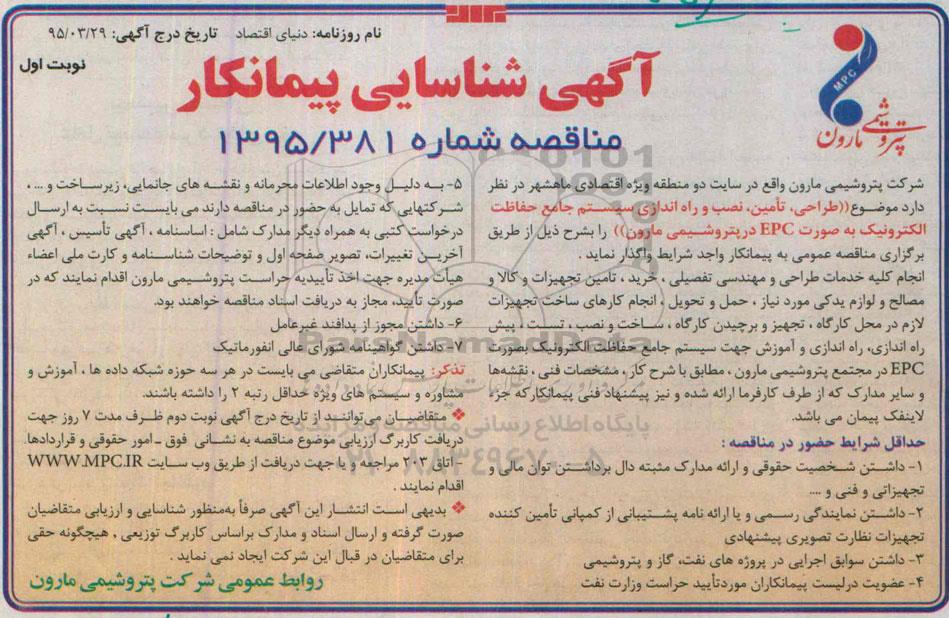 نام روزنامه: دنیای اقتصاد تاریخ درج آگهی: ۹۵/۰۳/۲۹
نوبت اول
MPC
پتروشیمی مارون
آگهی شناسایی پیمانکار
مناقصه شماره ۱۳۹۵/۳۸۱
شرکت پتروشیمی مارون واقع در سایت دو منطقه ویژه اقتصادی ماهشهر در نظر
دارد موضوع ((طراحی، تأمین، نصب و راه اندازی سیستم جامع حفاظت
الکترونیک به صورت EPC درپتروشیمی مارون)) را بشرح ذیل از طریق
برگزاری مناقصه عمومی به پیمانکار واجد شرایط واگذار نماید .
انجام کلیه خدمات طراحی و مهندسی تفصیلی ، خرید ، تامین تجهیزات و کالا و
مصالح و لوازم یدکی مورد نیاز ، حمل و تحویل ، انجام کارهای ساخت تجهیزات
لازم در محل کارگاه ، تجهیز و برچیدن کارگاه ، ساخت و نصب ، تست ، پیش
راه اندازی، راه اندازی و آموزش جهت سیستم جامع حفاظت الکترونیک بصورت
EPC در مجتمع پتروشیمی مارون ، مطابق با شرح کار ، مشخصات فنی ، نقشه‌ها
و سایر مدارک که از طرف کارفرما ارائه شده و نیز پیشنهاد فنی پیمانکار که جزء
لاینفک پیمان می باشد.
حداقل شرایط حضور در مناقصه :
۱- داشتن شخصیت حقوقی و ارائه مدارک مثبته دال برداشتن توان مالی و
تجهیزاتی و فنی و ....
۲- داشتن نمایندگی رسمی و یا ارائه نامه پشتیبانی از کمپانی تأمین کننده
تجهیزات نظارت تصویری پیشنهادی
۳- داشتن سوابق اجرایی در پروژه های نفت، گاز و پتروشیمی
۴- عضویت درلیست پیمانکاران موردتأیید حراست وزارت نفت
۵- به دلیل وجود اطلاعات محرمانه و نقشه های جانمایی، زیرساخت و ... ،
شرکتهایی که تمایل به حضور در مناقصه دارند می بایست نسبت به ارسال
درخواست کتبی به همراه دیگر مدارک شامل : اساسنامه ، آگهی تأسیس ، آگهی
آخرین تغییرات، تصویر صفحه اول و توضیحات شناسنامه و کارت ملی اعضاء
هیأت مدیره جهت اخذ تأییدیه حراست پتروشیمی مارون اقدام نمایند که در
صورت تأیید، مجاز به دریافت اسناد مناقصه خواهند بود.
۶- داشتن مجوز از پدافند غیرعامل
۷- داشتن گواهینامه شورای عالی انفورماتیک
تذکر: پیمانکاران متقاضی می بایست در هر سه حوزه شبکه داده ها ، آموزش و
مشاوره و سیستم های ویژه حداقل رتبه ۲ را داشته باشند.
❖ متقاضیان می‌توانند از تاریخ درج آگهی نوبت دوم ظرف مدت ۷ روز جهت
دریافت کاربرگ ارزیابی موضوع مناقصه به نشانی فوق - امور حقوقی و قراردادها
- اتاق ۲۰۳ مراجعه و یا جهت دریافت از طریق وب سایت WWW.MPC.IR
اقدام نمایند .
❖ بدیهی است انتشار این آگهی صرفاً به‌منظور شناسایی و ارزیابی متقاضیان
صورت گرفته و ارسال اسناد و مدارک براساس کاربرگ توزیعی ، هیچگونه حقی
برای متقاضیان در قبال این شرکت ایجاد نمی نماید .
روابط عمومی شرکت پتروشیمی مارون
ParsNamadData
پایگاه اطلاع رسانی مناقصه و مزایده